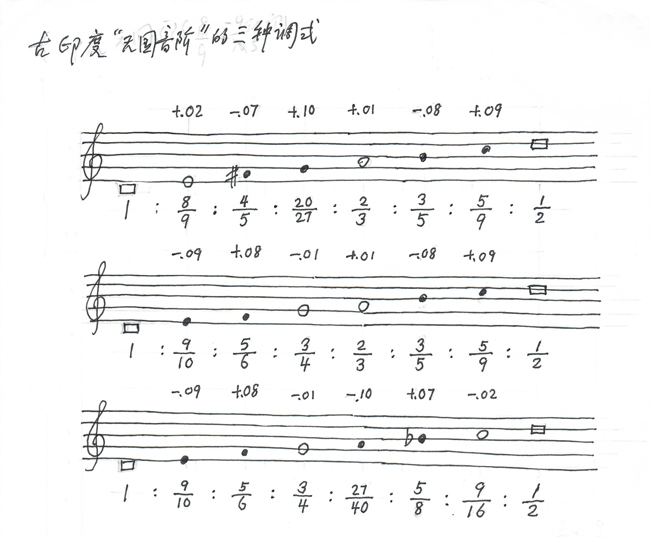 古印度“天国音阶”的三种调式
+.02 -.07 +.10 +.01 -.08 +.09
1 : 8/9 : 4/5 : 20/27 : 2/3 : 3/5 : 5/9 : 1/2
-.09 +.08 -.01 +.01 -.08 +.09
1 : 9/10 : 5/6 : 3/4 : 2/3 : 3/5 : 5/9 : 1/2
-.09 +.08 -.01 -.10 +.07 -.02
1 : 9/10 : 5/6 : 3/4 : 27/40 : 5/8 : 9/16 : 1/2